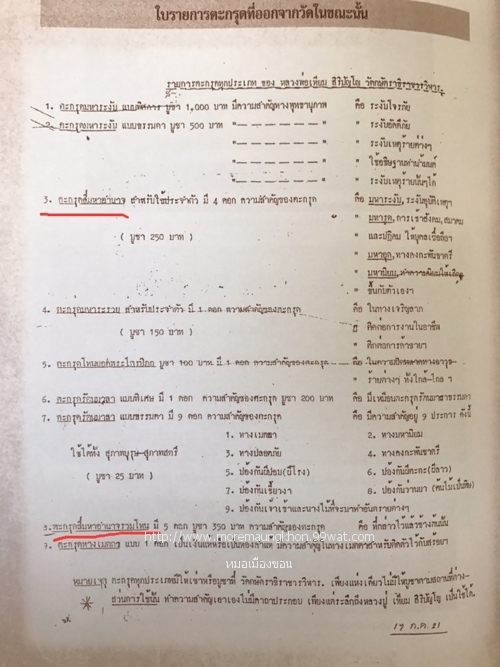 ใบรายการตะกรุดที่ออกจากวัดในขณะนั้น
รายการตะกรุดทุกประเภท ของ หลวงพ่อเทียม สิริปัญโญ วัดกษัตราธิราชวรวิหาร
1. ตะกรุดมหาระงับ แบบพิสดาร บูชา 1,000 บาท มีความสำคัญทางพุทธานุภาพ คือ ระงับโจรภัย
2. ตะกรุดมหาระงับ แบบธรรมดา บูชา 500 บาท " " ระงับอัคคีภัย
" " ระงับเหตุร้ายต่างๆ
" " ใช้อธิษฐานทำน้ำมนต์
" " ระงับเหตุร้ายนั้นๆได้
3. ตะกรุดสี่มหาอำนาจ สำหรับใช้ประจำตัว มี 4 ดอก ความสำคัญของตะกรุด คือ มหาระงับ, ระงับทุกข์เหตุฯ
" มหารูด, การเข้าสังคม, สมาคม
( บูชา 250 บาท ) " และปฏิคม ให้บุคคลเชื่อถือฯ
" มหาอุด, ทางคงกะพันชาตรี
" มหานิยม,
" ขึ้นกับตัวเองฯ
4. ตะกรุดมหาระรวย สำหรับประจำตัว มี 1 ดอก ความสำคัญของตะกรุด คือ ในทางเจริญลาภ
" ติดต่อการงานในอาชีพ
( บูชา 150 บาท ) " ติดต่อการค้าขายฯ
5. บูชา 100 บาท มี 1 ดอก ความสำคัญของตะกรุด คือ
" ร้ายต่างๆ ทั้งใกล้-ไกล ฯ
6. ตะกรุดรัตนมาลา แบบพิเศษ มี 1 ดอก ความสำคัญของตะกรุด บูชา 200 บาท คือ มีเหมือนตะกรุดรัตนมาลาธรรมดา
7. ตะกรุดรัตนมาลา แบบธรรมดา มี 9 ดอก ความสำคัญของตะกรุด คือ มีความสำคัญอยู่ 9 ประการ ดังนี้
1. ทางเมตตา 2. ทางมหานิยม
ใช้ได้ทั้ง สุภาพบุรุษ-สุภาพสตรี 3. ทางปลอดภัย 4. ทางคงกะพันชาตรี
( บูชา 25 บาท ) 5. ป้องกันผีปอบ(ผีโรง) 6. ป้องกันผีกะละ(ผีลาว)
7. ป้องกันเขี้ยวงา 8. ป้องกันว่านยา
9. ป้องกันเจ้าเข้าและนางไม้ที่จะมาทำอันตรายต่างๆ
8. ตะกรุดสี่มหาอำนาจรวมโทน มี 5 ดอก บูชา 350 บาท ความสำคัญของตะกรุด คือ ที่กล่าวไว้แล้วข้างต้นนั้น
http://www.moremaungkhon.99wat.com
หมอเมืองขอน
หมายเหตุ ตะกรุดทุกประเภทมีให้เช่าหรือบูชาที่ วัดกษัตราธิราชวรวิหาร. เพียงแห่งเดียวไม่มีให้บูชาตามสถานที่ต่างๆ
ส่วนการใช้นั้น ทำความสำคัญเอาเองไม่มีคาถาประกอบ เพียงแต่ระลึกถึงหลวงปู่ เทียม สิริปัญโญ เป็นใช้ได้.
17 ก.ค. 21